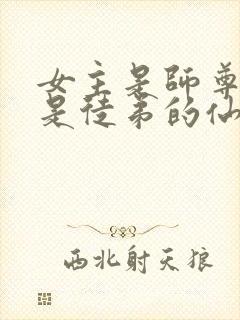 女主是師尊
是徒弟的仙
西北射天狼